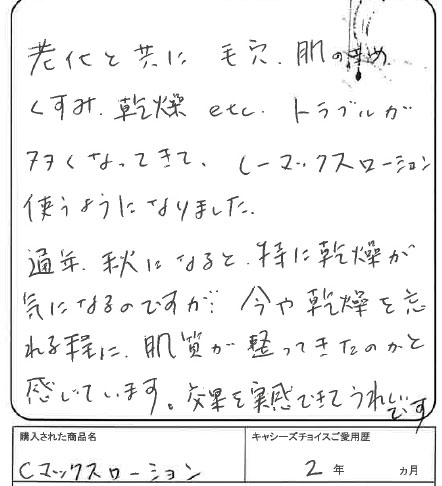 老化と共に 毛穴、肌の
くすみ、乾燥 etc. トラブルが
多くなってきて、Cーマックスローション
使うようになりました。
通年、秋になると、特に乾燥が
気になるのですが、今や乾燥を忘
れる程に、肌質が整ってきたのかと
感じています。効果を実感できてうれしいです
購入された商品名
キャシーズチョイスご愛用歴
Cマックスローション
2年 ヵ月